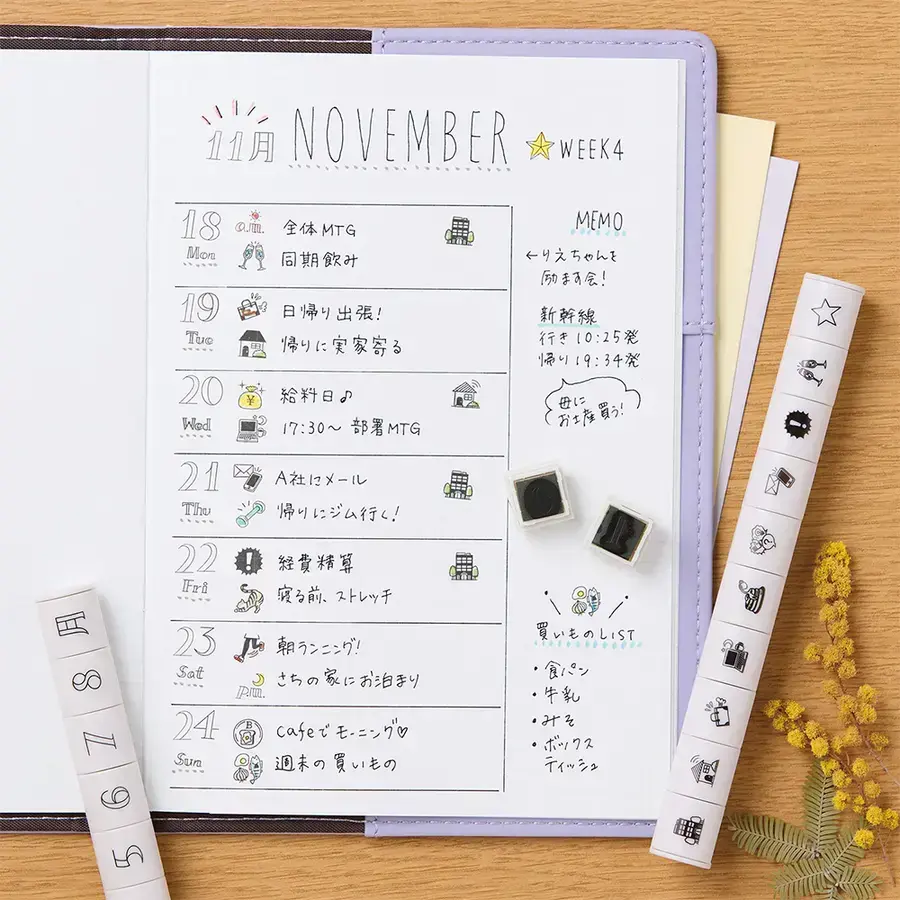 11月 NOVEMBER ★WEEK4
18 Mon
a.m. 全体MTG
同期飲み
19 Tue
日帰り出張!
帰りに実家寄る
20 Wed
¥ 給料日♪
17:30〜 部署MTG
21 Thu
A社にメール
帰りにジム行く!
22 Fri
! 経費精算
寝る前、ストレッチ
23 Sat
朝ランニング!
p.m. さちの家にお泊まり
24 Sun
B Cafeでモーニング♡
週末の買いもの
MEMO
←りえちゃんを
励ます会!
新幹線
行き 10:25発
帰り 19:34発
母に
お土産買う!
買いものLIST
・食パン
・牛乳
・みそ
・ボックス
ティッシュ
月
8
7
6
5